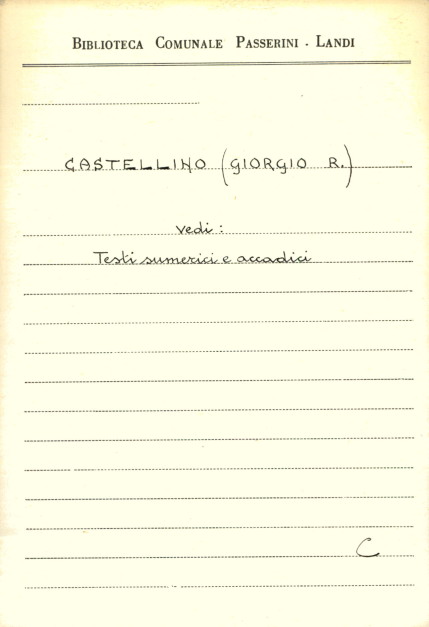 BIBLIOTECA COMUNALE PASSERINI - LANDI
CASTELLINO (GIORGIO R.)
vedi :
Testi sumerici e accadici
C